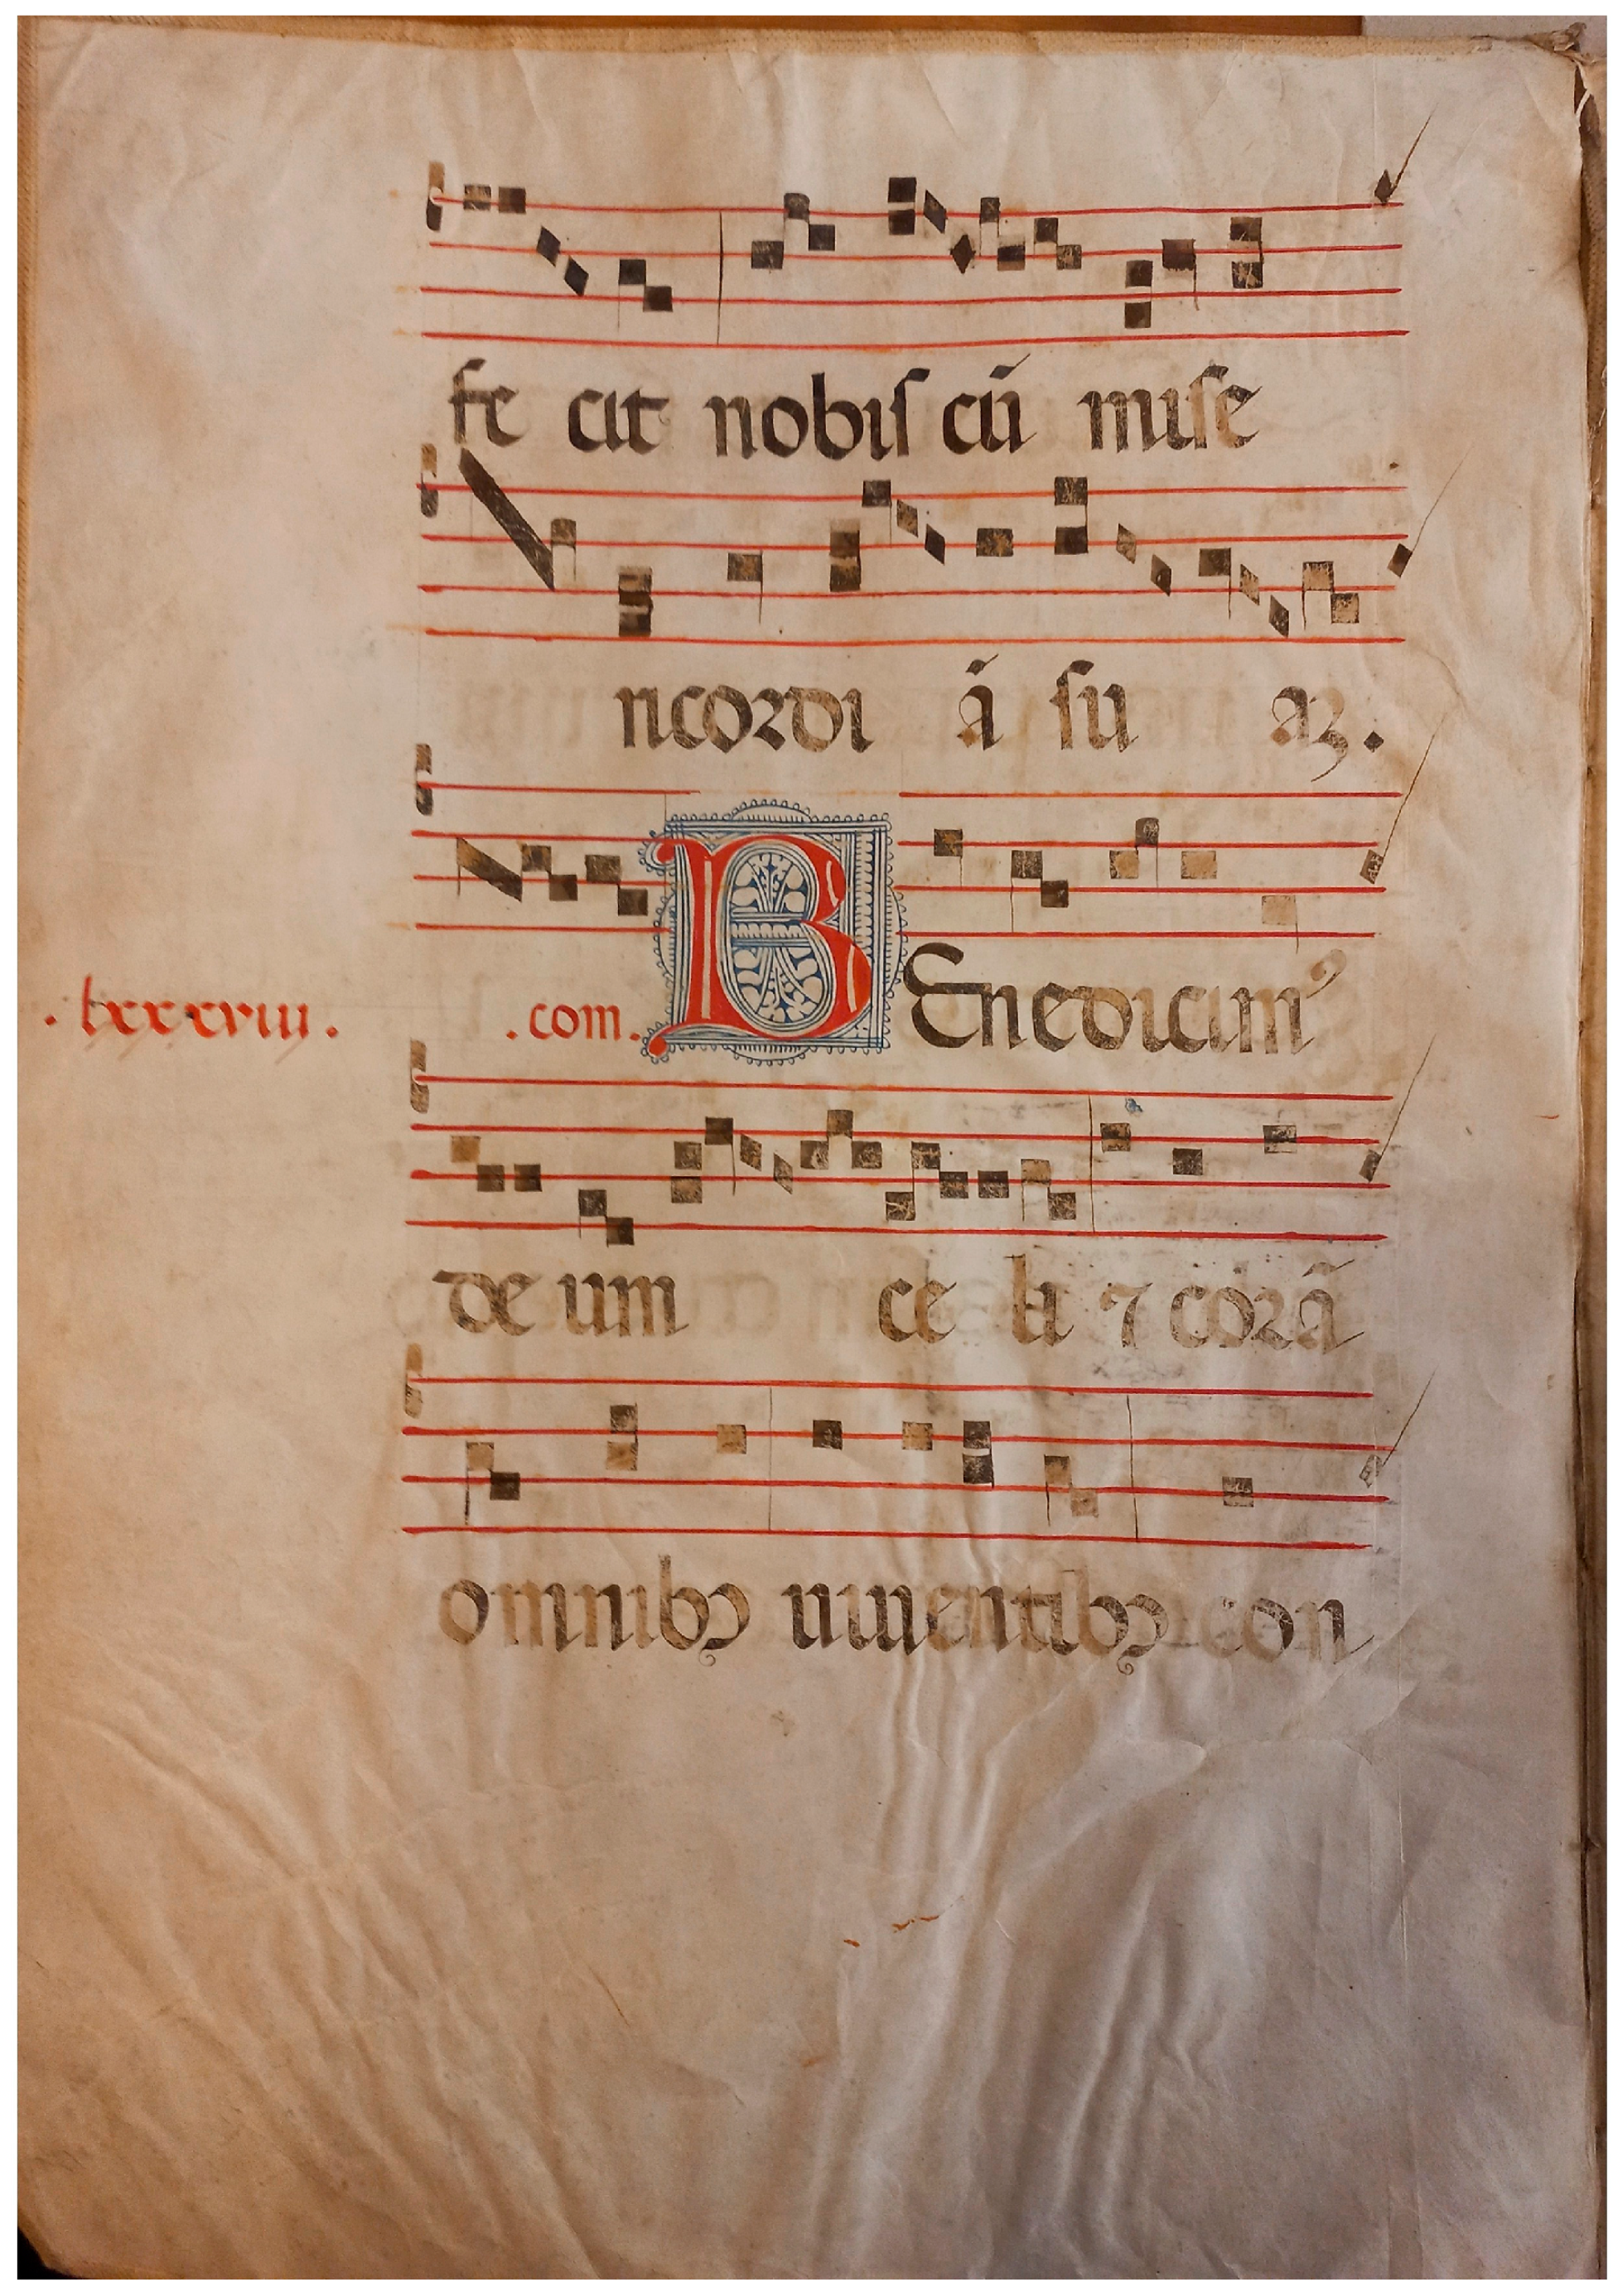 fe cit nobiſ cū miſe
ricordi ā ſu aꝫ.
.lxxxviii. .com. BEnedicimꝰ
de um ce li ⁊ corā
omnibꝫ uiuentibꝫ con